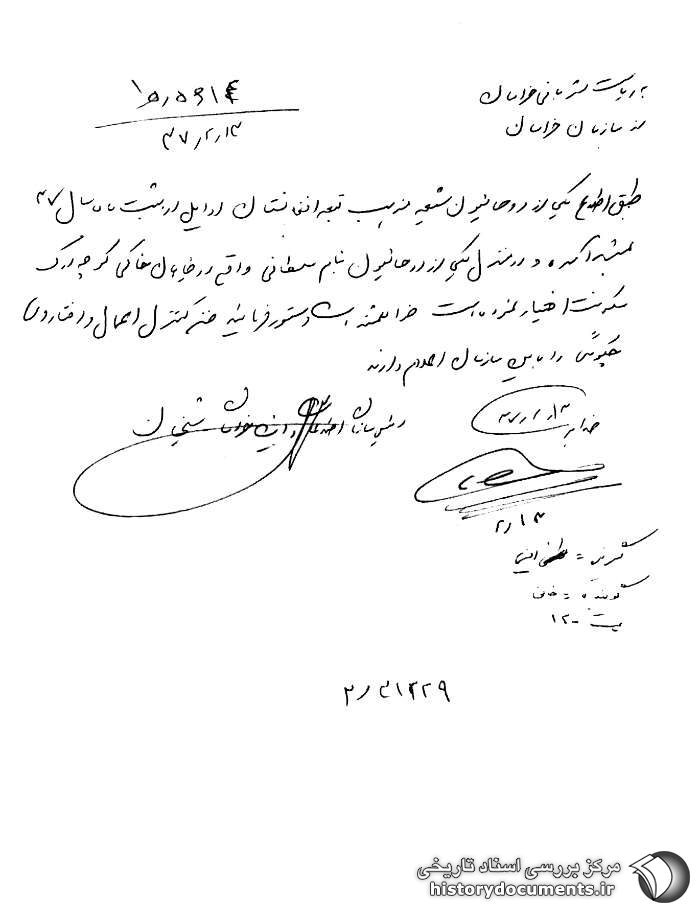 به ریاست شهربانی خراسان
از سازمان خراسان
۱۵/۵۶۱۴
۴۷/۲/۱۳
طبق اطلاع یکی از روحانیون شیعه مذهب تبعه افغانستان در اوایل اردیبهشت ماه سال ۴۷
بمشهد آمده و در منزل یکی از روحانیون بنام سلطانی واقع در خیابان خاکی کوچه زرگ
سکونت اختیار نموده است خواهشمند است دستور فرمائید ضمن کنترل اعمال و رفتار وی
چگونگی را باین سازمان اعلام دارند
رئیس سازمان اطلاعات و امنیت خراسان شیخان
۴۷/۲/۱۳
۲/۱۳
گیرنده =
گوینده =
ساعت ۱۲۰۰
۲/۳۱۳۲۹
مرکز بررسی اسناد تاریخی
historydocuments.ir